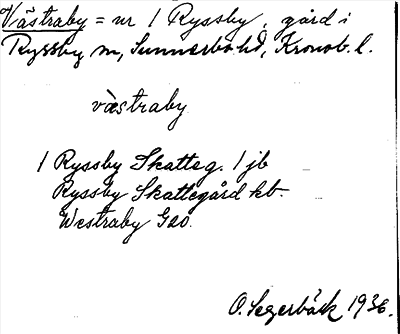 Västraby = nr 1 Ryssby, gård i
Ryssby sn, Sunnerbo hd, Kronob. l.
västraby
1 Ryssby Skatteg. 1 jb
Ryssby Skattegård kb.
Westraby Geo.
O. Segerbäck 1936.